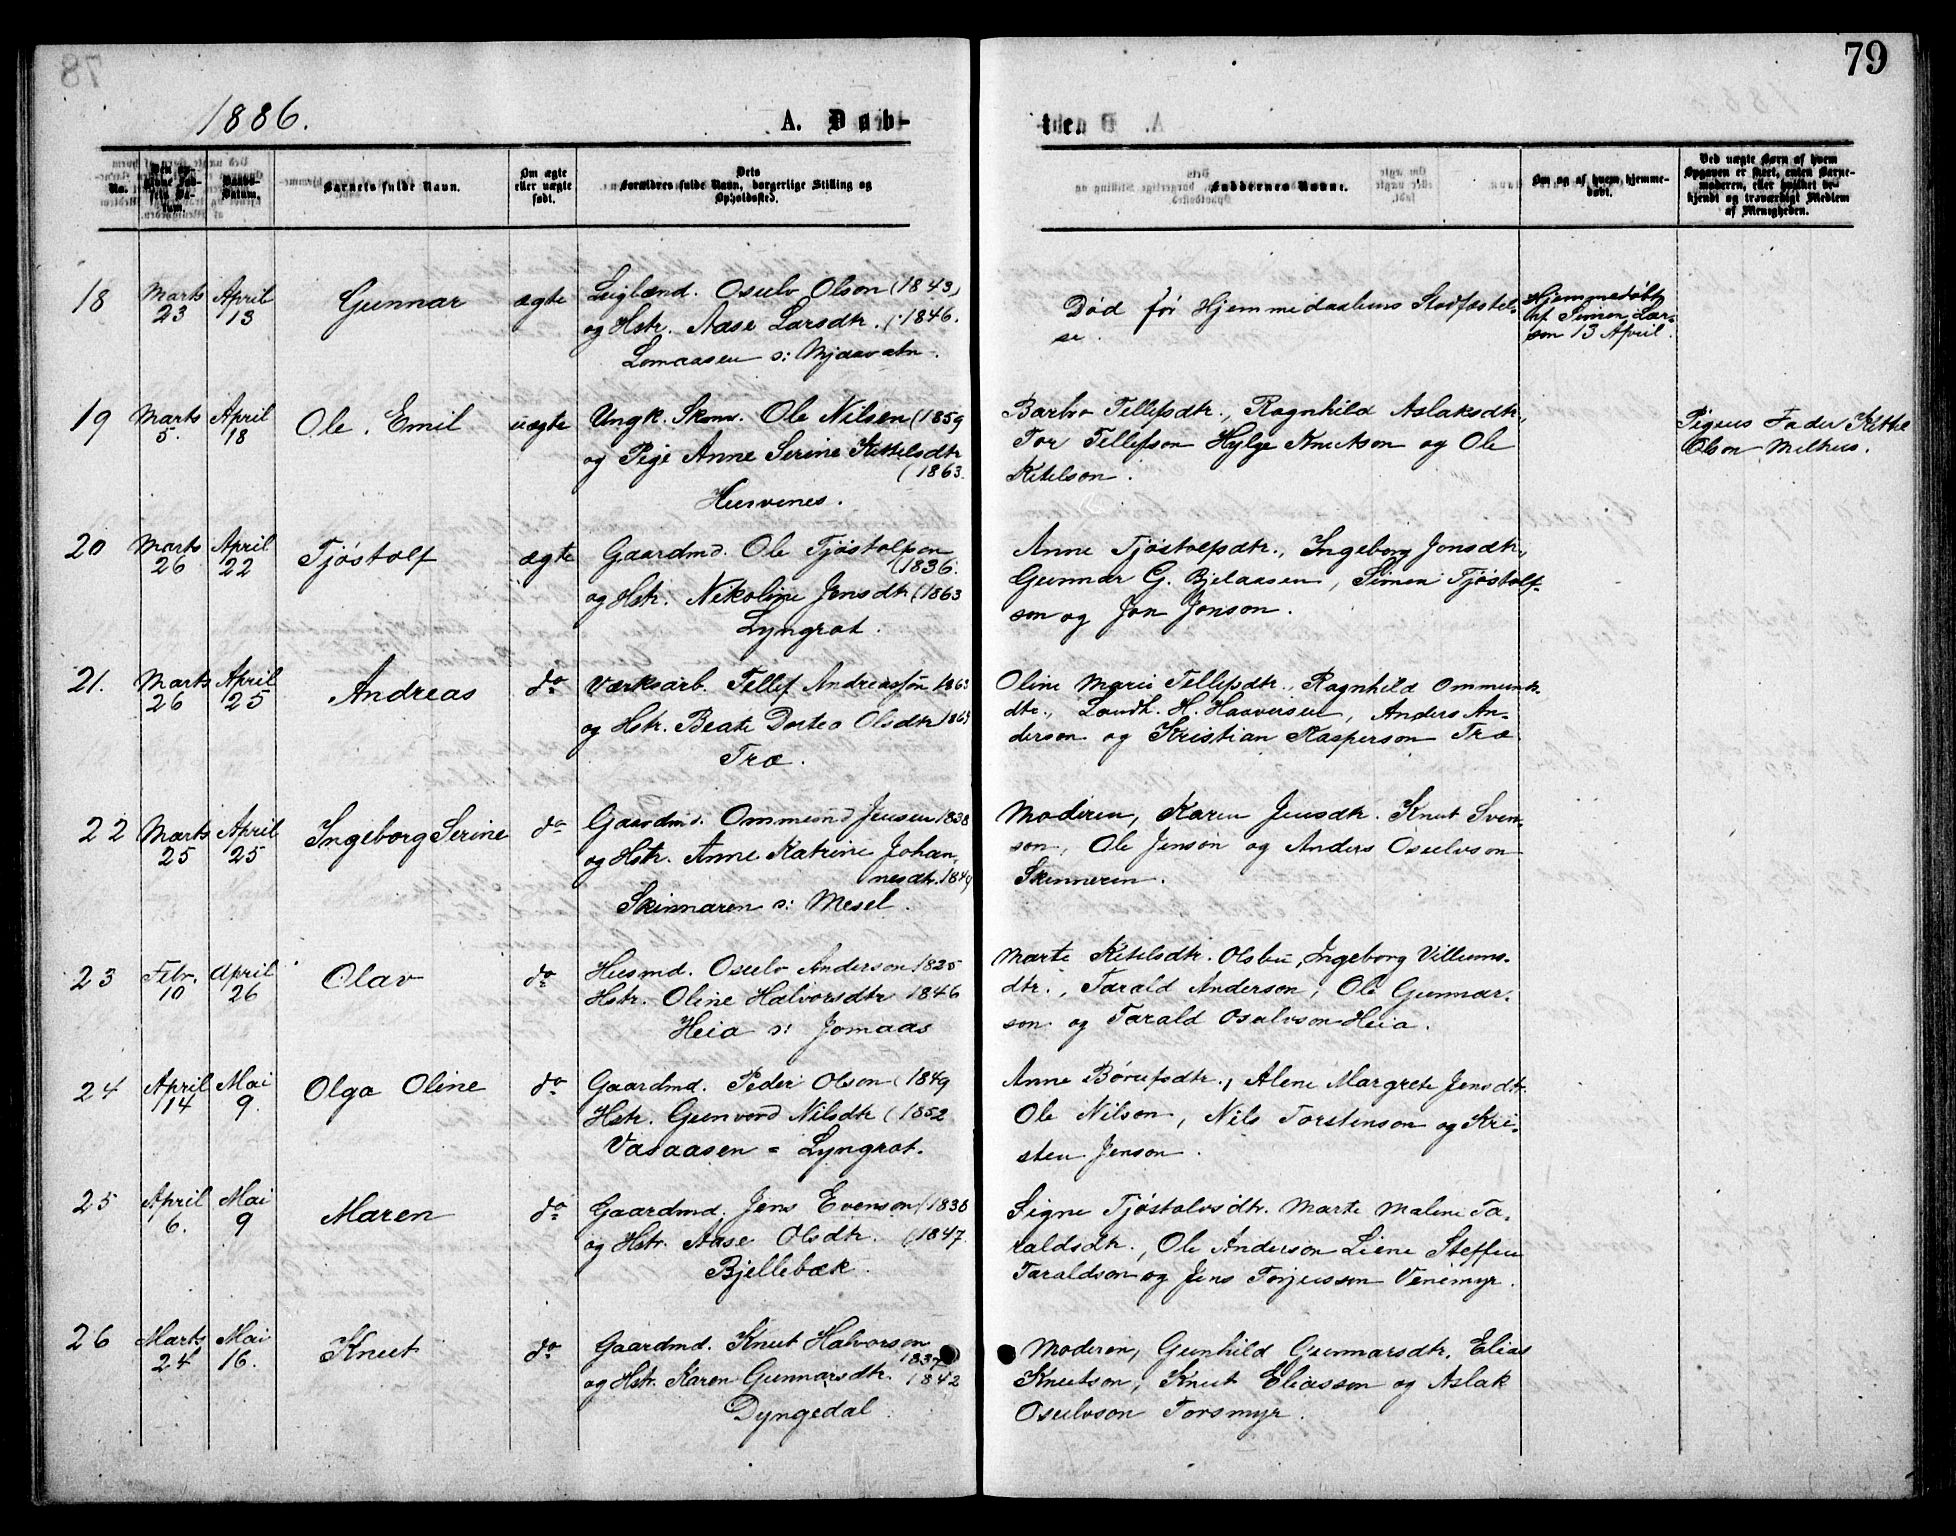 79
1886.
A. Døb-
ten.
No.
Den opgivne Fødsels Datum.
Daabs-Datum.
Barnets fulde Navn.
Om ægte eller uægte født.
Dets Forældres fulde Navn, borgerlige Stilling og Opholdssted.
Fadderes Navne.
Om og af hvem hjemmedøbt.
Ved uægte Børn af hvem Opgaven er skeet, enten Barnemoderen, eller hvilket bekjendt og troværdigt Medlem af Menigheden.
18 Marts 23 April 13 Gunnar ægte
Leiglænd. Osulv Olson (1843)
og Hstr. Aase Larsdtr. (1846.
Lomaasen s: Mjaavatn.
Død før Hjemmedaabens Stadfæstel-
se.
Hjemmedøbt
af Simon Lar-
son 13 April.
19 Marts 5. April 18 Ole Emil uægte
Ungk. Skom. Ole Nilsen (1859
og Pige Anne Serine Kittelsdtr
(1863.
Husvenes.
Barbro Tellefsdtr., Ragnhild Aslaksdtr.,
Tor Tellefson Hylge Knutson og Ole
Kitelson.
Pigens Fader Kittel
Olson Melhus.
20 Marts 26 April 22 Tjøstolf ægte
Gaardmd. Ole Tjøstolfson
(1836.
og Hstr. Nikoline Jensdtr (1863
Lyngrot.
Anne Tjøstolfsdtr., Ingeborg Jonsdtr.,
Gunnar G. Bjelaasen, Simen Tjøstolf-
son og Jon Jonson.
21. Marts 26 April 25 Andreas do
Værksarb. Tellef Andreassøn 1863
og Hstr. Beate Dortea Olsdtr 1863
Træ.
Oline Marie Tellefsdtr., Ragnhild Ommunds-
dtr., Landh. H. Haaversen, Anders An-
derson og Kristian Kasperson Træ.
22 Marts 25 April 25 Ingeborg Serine do
Gaardmd. Ommund Jensen 1838
og Hstr. Anne Katrine Johan-
nesdtr. 1849
Skinnaren s: Mesel.
Moderen, Karen Jensdtr. Knut Sven-
son, Ole Jenson og Anders Osulvson
Skinneren.
23 Febr. 10 April 26 Olav do
Husmd. Osulv Anderson 1825
Hstr. Oline Halvorsdtr 1846
Heia s: Jomaas
Marte Kitelsdtr. Olsbu, Ingeborg Villums-
dtr., Tarald Anderson, Ole Gunnar-
son og Tarald Osulvson Heia.
24 April 14 Mai 9. Olga Oline do
Gaardmd. Peder Olson (1849
Hstr. Gunvord Nilsdtr (1852
Vasaasen = Lyngrot.
Anne Børufsdtr., Alene Margrete Jensdtr.
Ole Nilson, Nils Torstenson og Kri-
sten Jenson.
25 April 6. Mai 9 Maren do
Gaardmd. Jens Evenson (1838
og Hstr. Aase Olsdtr. (1847.
Bjellebæk.
Signe Tjøstolvsdtr. Marte Malene Ta-
raldsdtr., Ole Anderson Liene Steffen
Taraldson og Jens Torjusson Venemyr.
26 Marts 24 Mai 16. Knut do
Gaardmd. Knut Halvorson
1837
og Hstr. Karen Gunnarsdtr. 1842
Dyngedal.
Moderen, Gunhild Gunnarsdtr. Elias
Knutson, Knut Eliasson og Aslak
Osulvson Torsmyr.